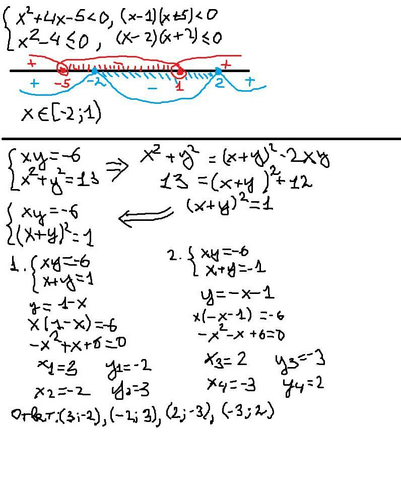 {x²+4x-5<0, (x-1)(x+5)<0
{x²-4≤0, (x-2)(x+2)≤0
+ - +
-5 -2 1 2
+ - +
x∈[-2;1)
{xy=-6 ⇒ x²+y²=(x+y)²-2xy
{x²+y²=13 13=(x+y)²+12
{xy=-6 ⇐ (x+y)²=1
{(x+y)²=1
1. {xy=-6
{x+y=1
y=1-x
x(1-x)=-6
-x²+x+6=0
x₁=3 y₁=-2
x₂=-2 y₂=3
2. {xy=-6
{x+y=-1
y=-x-1
x(-x-1)=-6
-x²-x+6=0
x₃=2 y₃=-3
x₄=-3 y₄=2
Ответ:(3;-2),(-2;3),(2;-3),(-3;2)